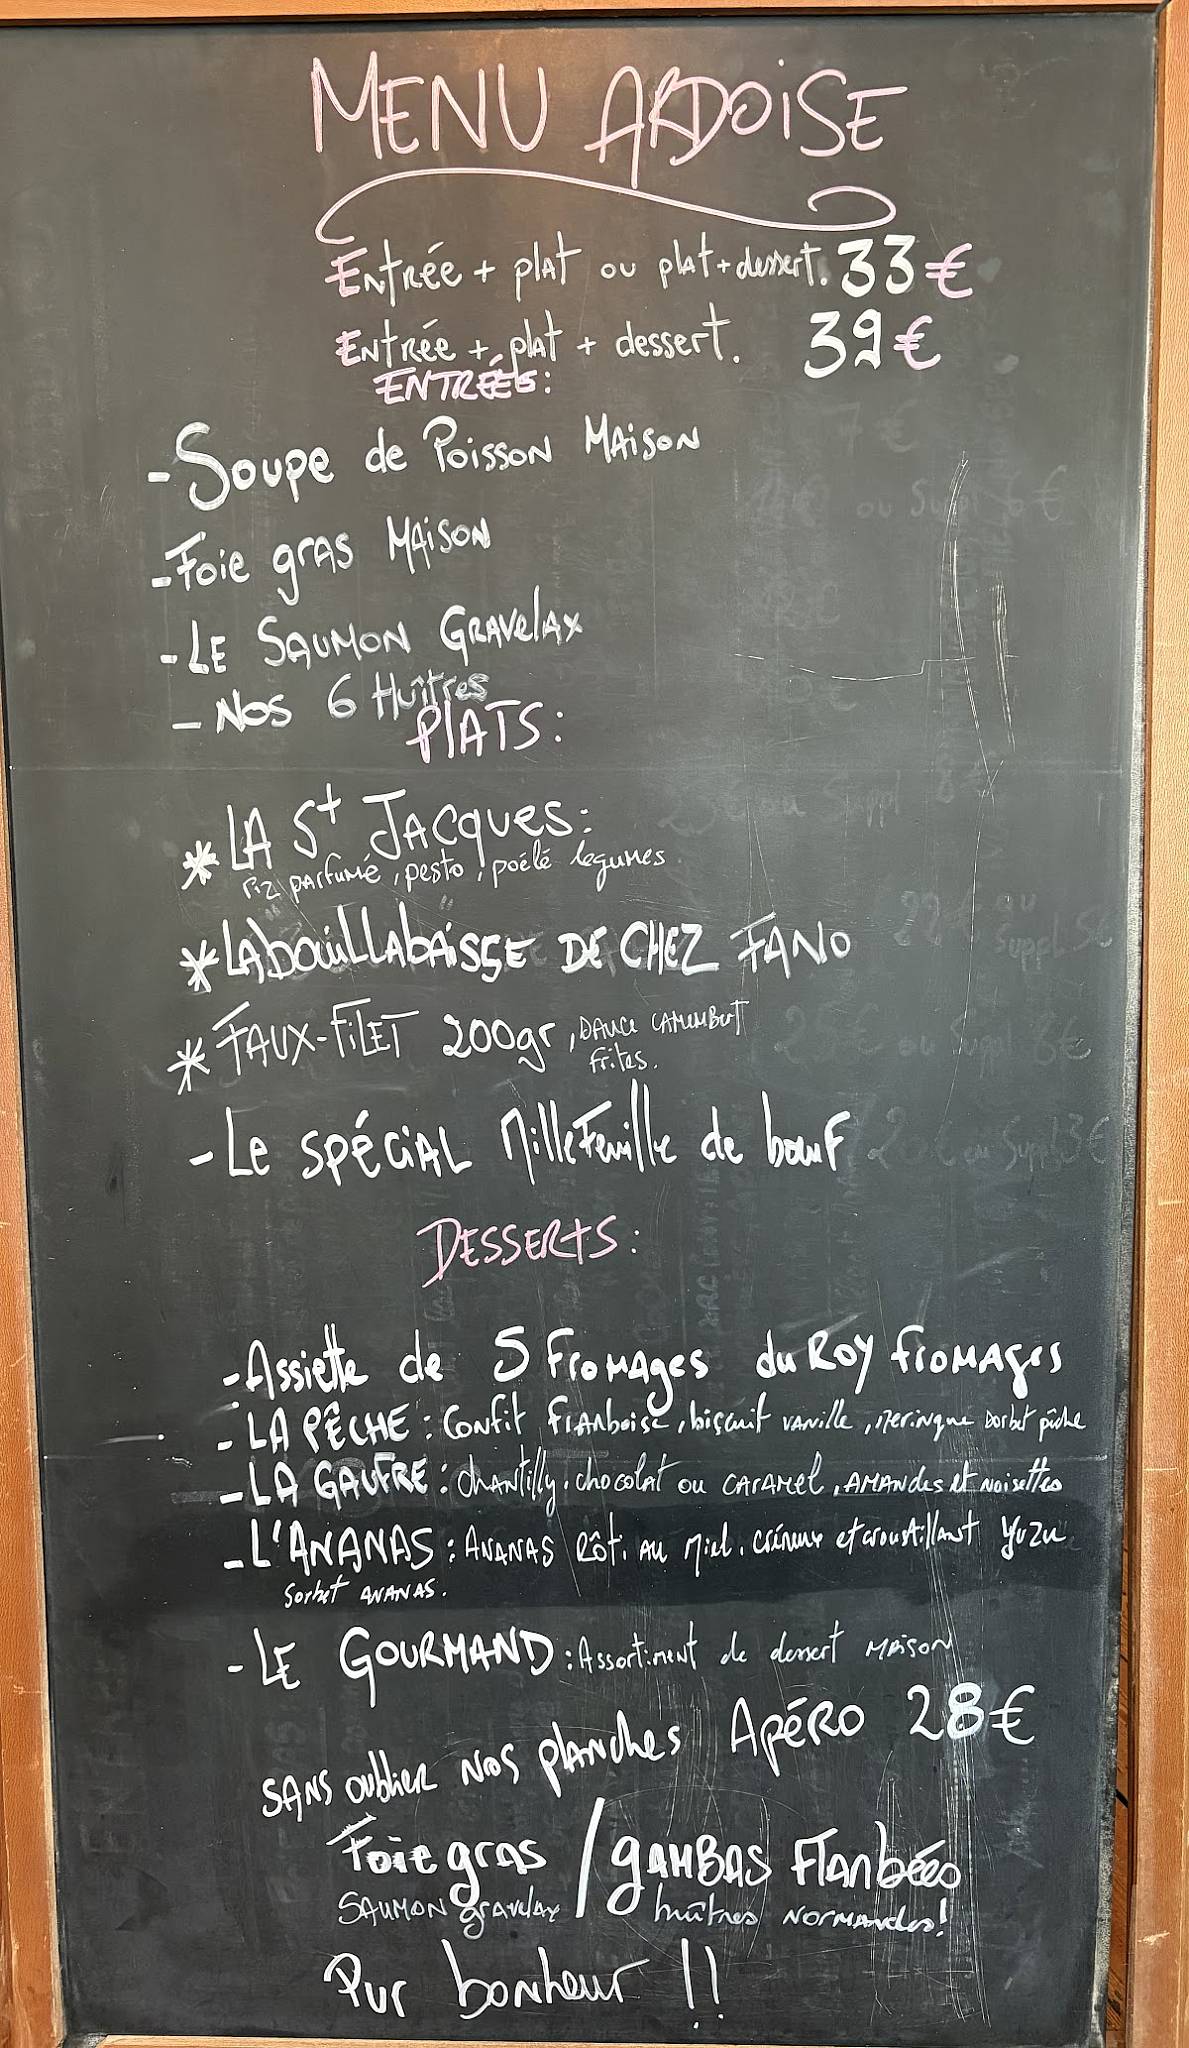 MENU ARDOISE
Entrée + plat ou plat + dessert. 33 €
Entrée + plat + dessert. 39 €
ENTRÉES :
- Soupe de Poisson Maison
- Foie gras Maison
- Le Saumon Gravelax
- Nos 6 Huîtres
PLATS :
* LA St JACQUES :
riz parfumé, pesto, poélé legumes
* LA bouillabaisse DE CHEZ FANO
* FAUX-FILET 200gr, sauce camembert
frites.
- Le spécial Millefeuille de bœuf
DESSERTS :
- Assiette de 5 fromages du Roy fromages
- LA PÊCHE : Confit framboise, biscuit vanille, meringue sorbet pêche
- LA GAUFRE : chantilly, chocolat ou caramel, amandes et noisettes
- L'ANANAS : Ananas rôti au miel, crémeux et croustillant yuzu
sorbet ananas.
- LE GOURMAND : Assortiment de dessert maison
sans oublier nos planches Apéro 28 €
Foie gras / gambas flambées
saumon gravelax / huîtres normandes !
Pur bonheur !!